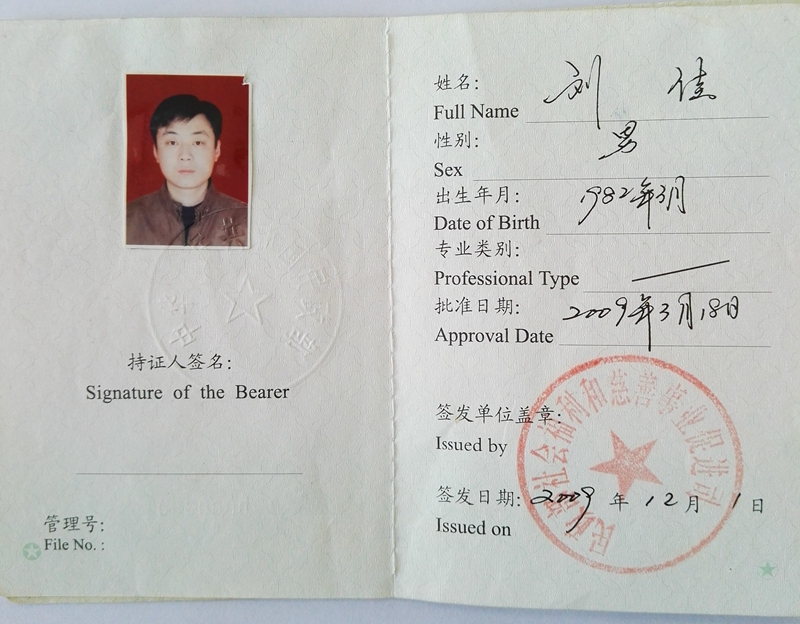 持证人签名:
Signature of the Bearer
管理号:
File No. :
姓名: 刘佳
Full Name
性别: 男
Sex
出生年月: 1982年3月
Date of Birth
专业类别:
Professional Type
批准日期: 2009年3月18日
Approval Date
签发单位盖章:
Issued by
民政部社会福利和慈善事业促进司
签发日期: 2009 年 12 月 1 日
Issued on